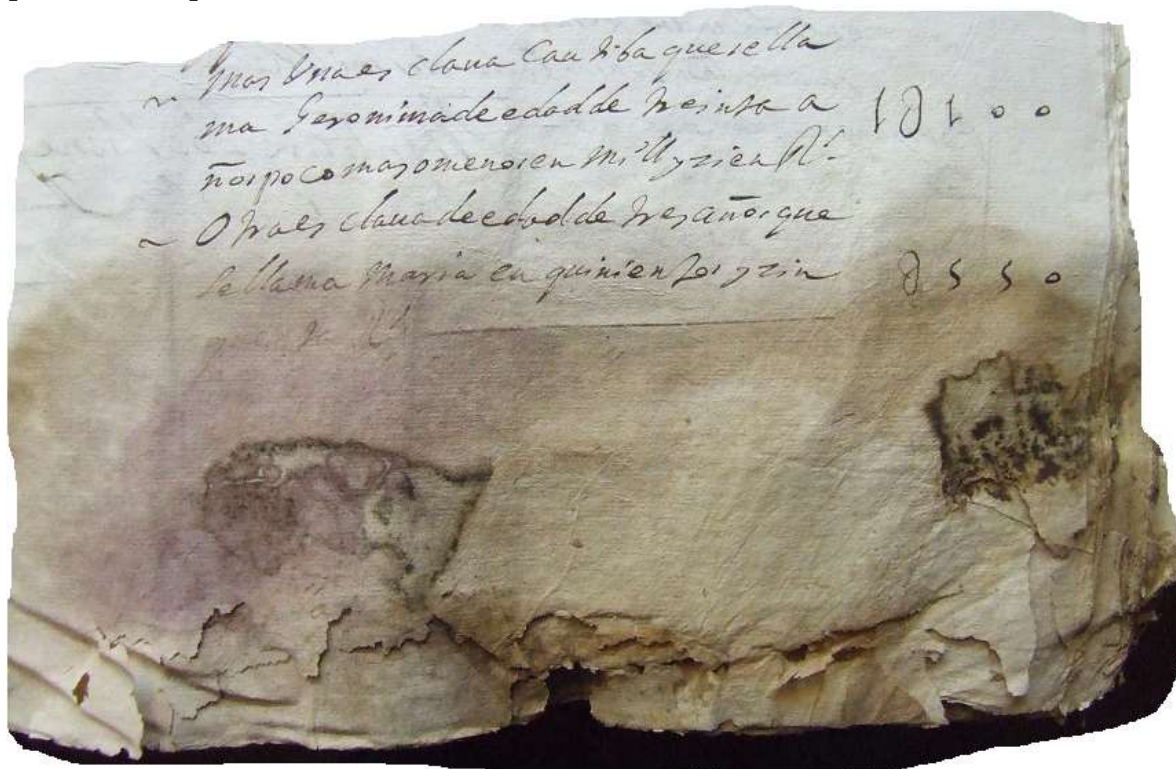 ~ mas Una es claua Cautiba que se lla
ma Geronima de edad de treinta a
ños poco mas o menos en mill y zien Rs 1U100
~ Otra es claua de edad de tres años que
se llama Maria en quinientos y zin
quenta Rs U550